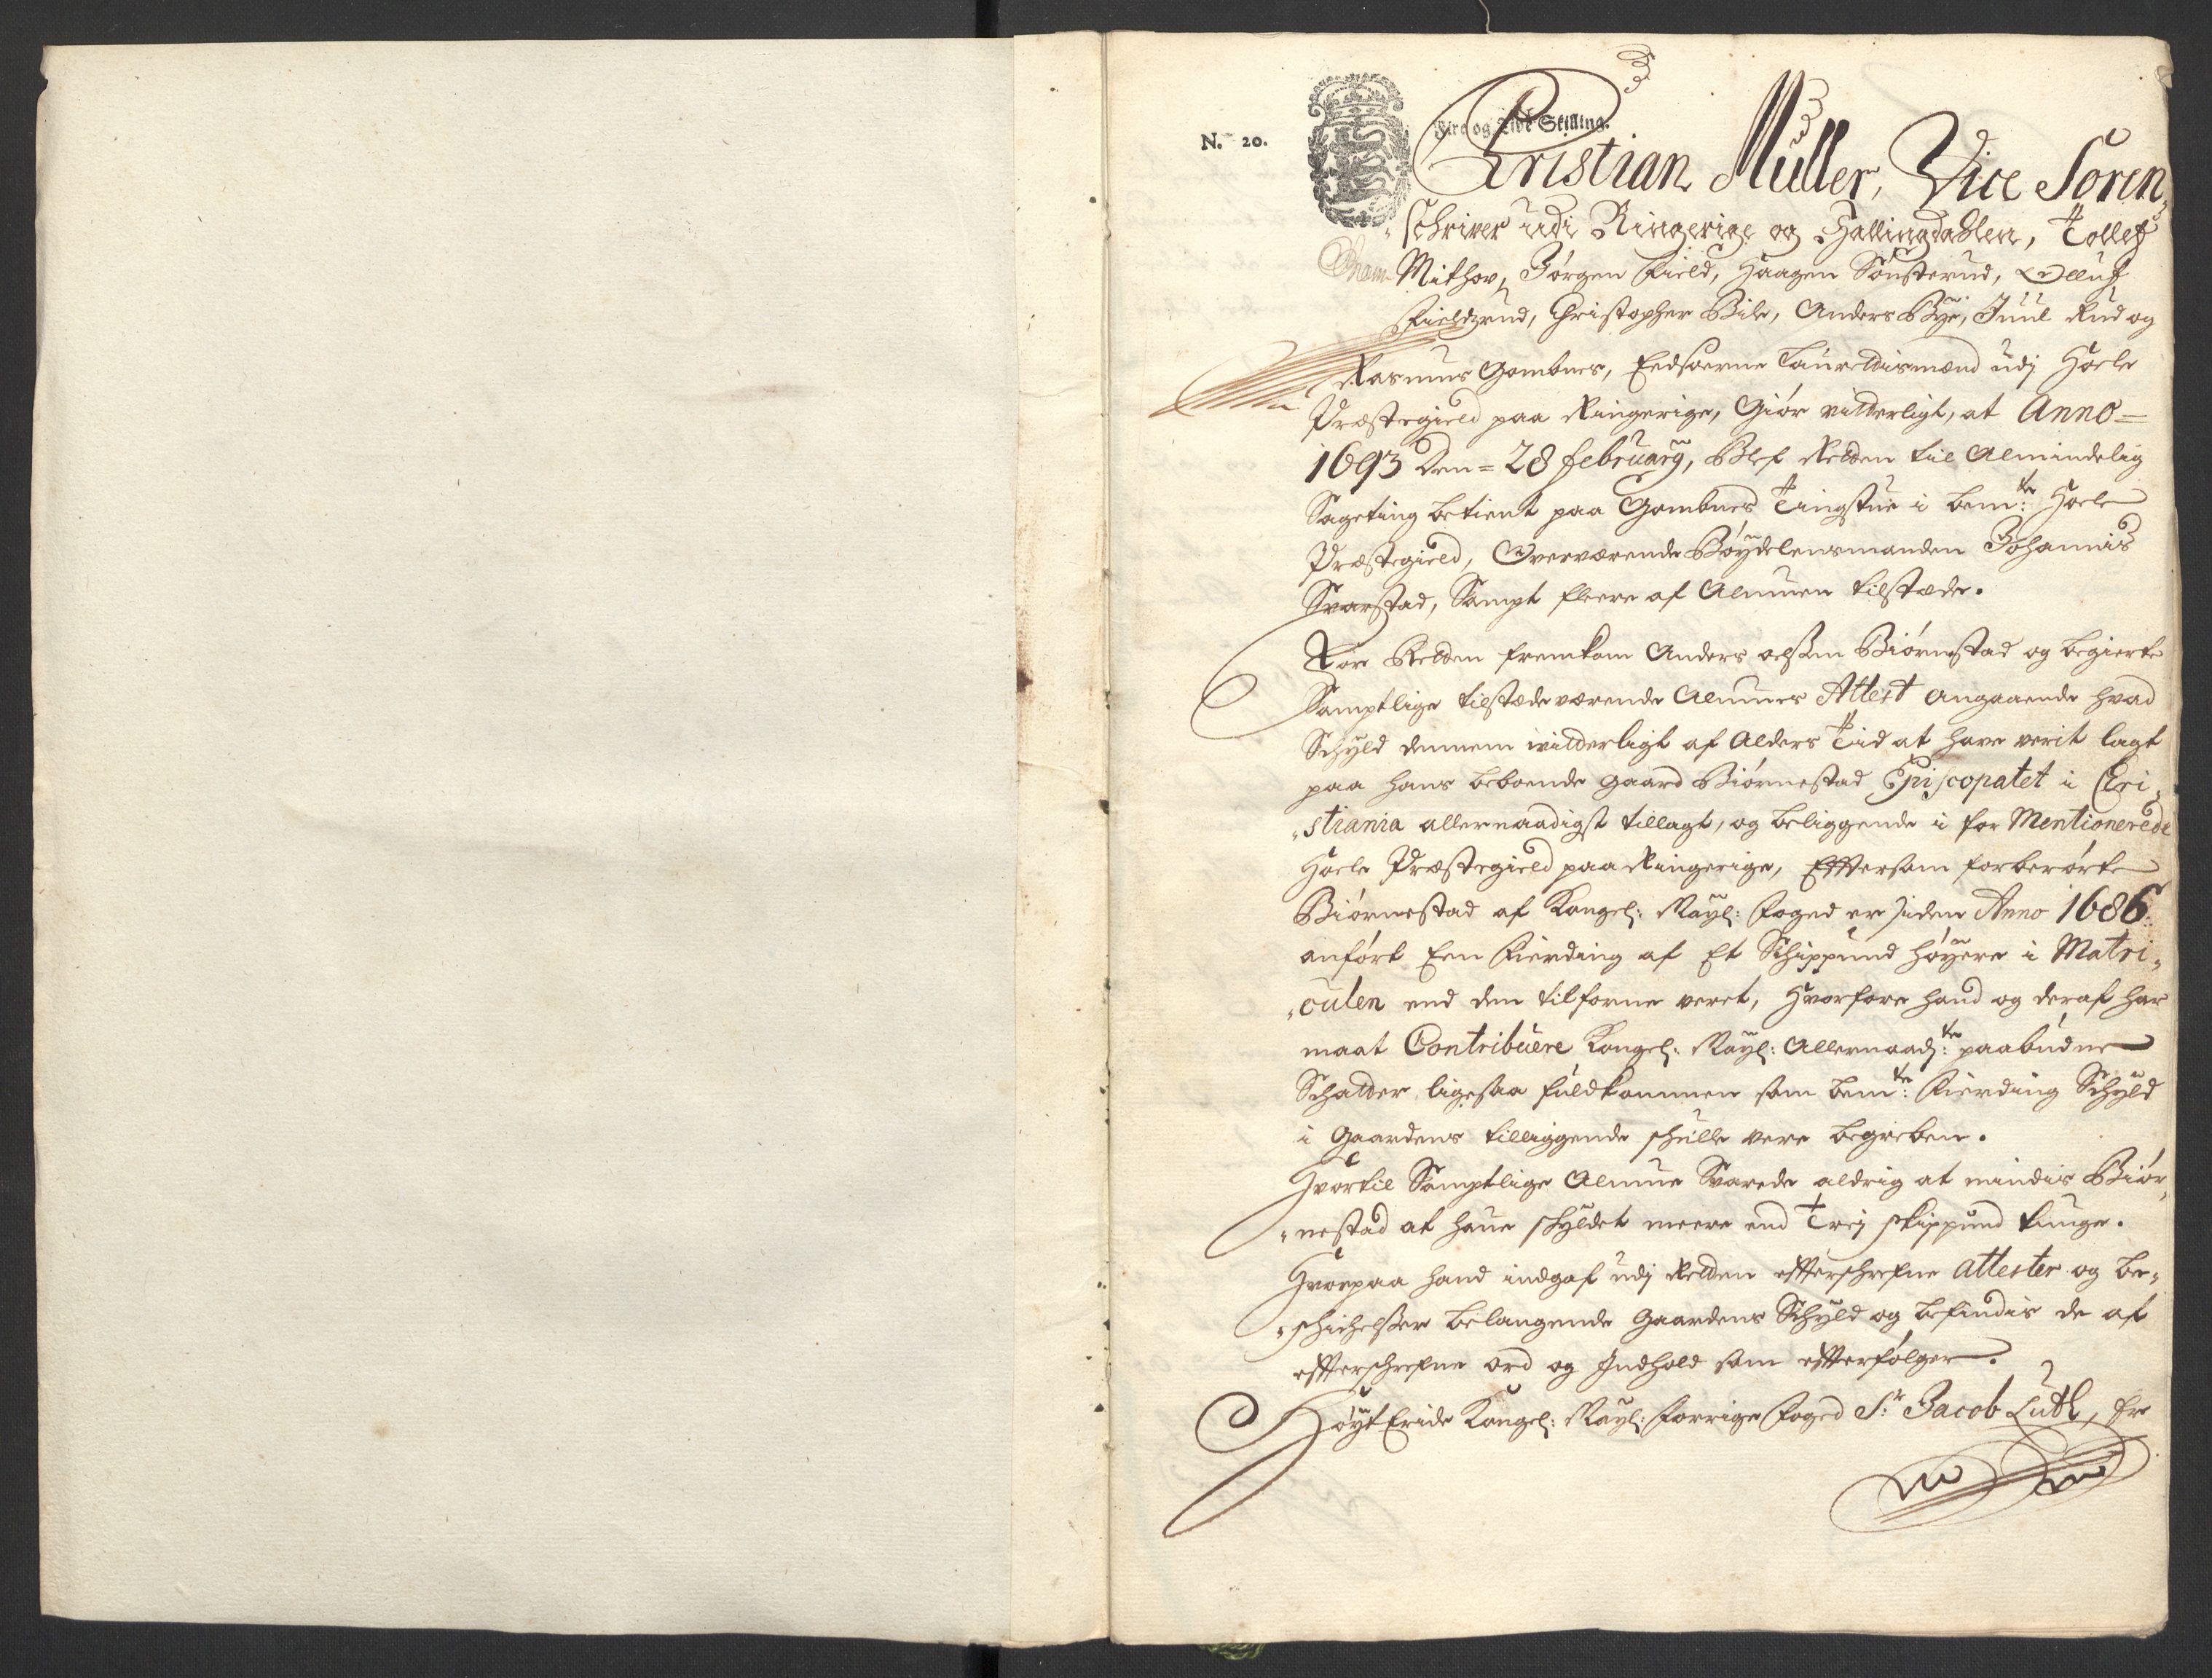 N. 20.
Fire og Tive Skilling.
Christian Müller, Vice Soren,
„schriver udi Ringerige og Hallingdahlen, Tollef
Mithov, Jørgen Field, Haagen Sønsterud, Olluf
Fieldzrud, Christopher Bile, Anders Bÿe, Juul Rud og
Rasmus Gombnes, Eedsoerne Laurettismænd udj Hoele
Præstegield paa Ringerige, Giør vitterligt, at Anno=
1693 den = 28 februarÿ, Blef Retten til Almindelig
Sageting betient paa Gombnes Tingstue i bem:te Hoele
Præstegield, Overværende Bøÿdelensmanden Johannis
Svarstad, Sampt fleere af Almuen tilstæde.
For Retten fremkom Anders Olsøn Biørnestad og begierte
Samptlige tilstædeværende Almues Attest angaaende hvad
Schyld dennem vitterligt af Alders Tid at have verit lagt
paa hans beboende gaard Biørnestad Episcopatet i Chri„
„stiania allernaadigst tillagt, og beliggende i for Mentionerede
Hoele Præstegield paa Ringerige, Efftersom forberørte
Biørnestad af Kongel: Maÿl: Foged er siden Anno 1686.
anført Een Fierding af Et Schippund høyere i Matri„
„culen end den tilforne veret, hvorfore hand og deraf har
maat Contribuere Kongel: Maÿl: Allernaad:te paabudne
Schatter ligesaa fuldkommen som bem:te Fierding Schyld
i Gaardens tilliggende schulle vere begreben.
Hvortil Samptlige Almue Svarede aldrig at mindis Biør„
„nestad at haue schyldet meere end Trej skippund tunge.
Hvorpaa hand indgaf udj Retten effterschrefne attester og be„
„schichelsser belangende Gaardens Schyld og befindis de af
effterschrefne ord og Indhold som effterfølger.
Høyt Eride Kongel: Maÿl: Forrige Foged Sr. Jacob Luth, Er